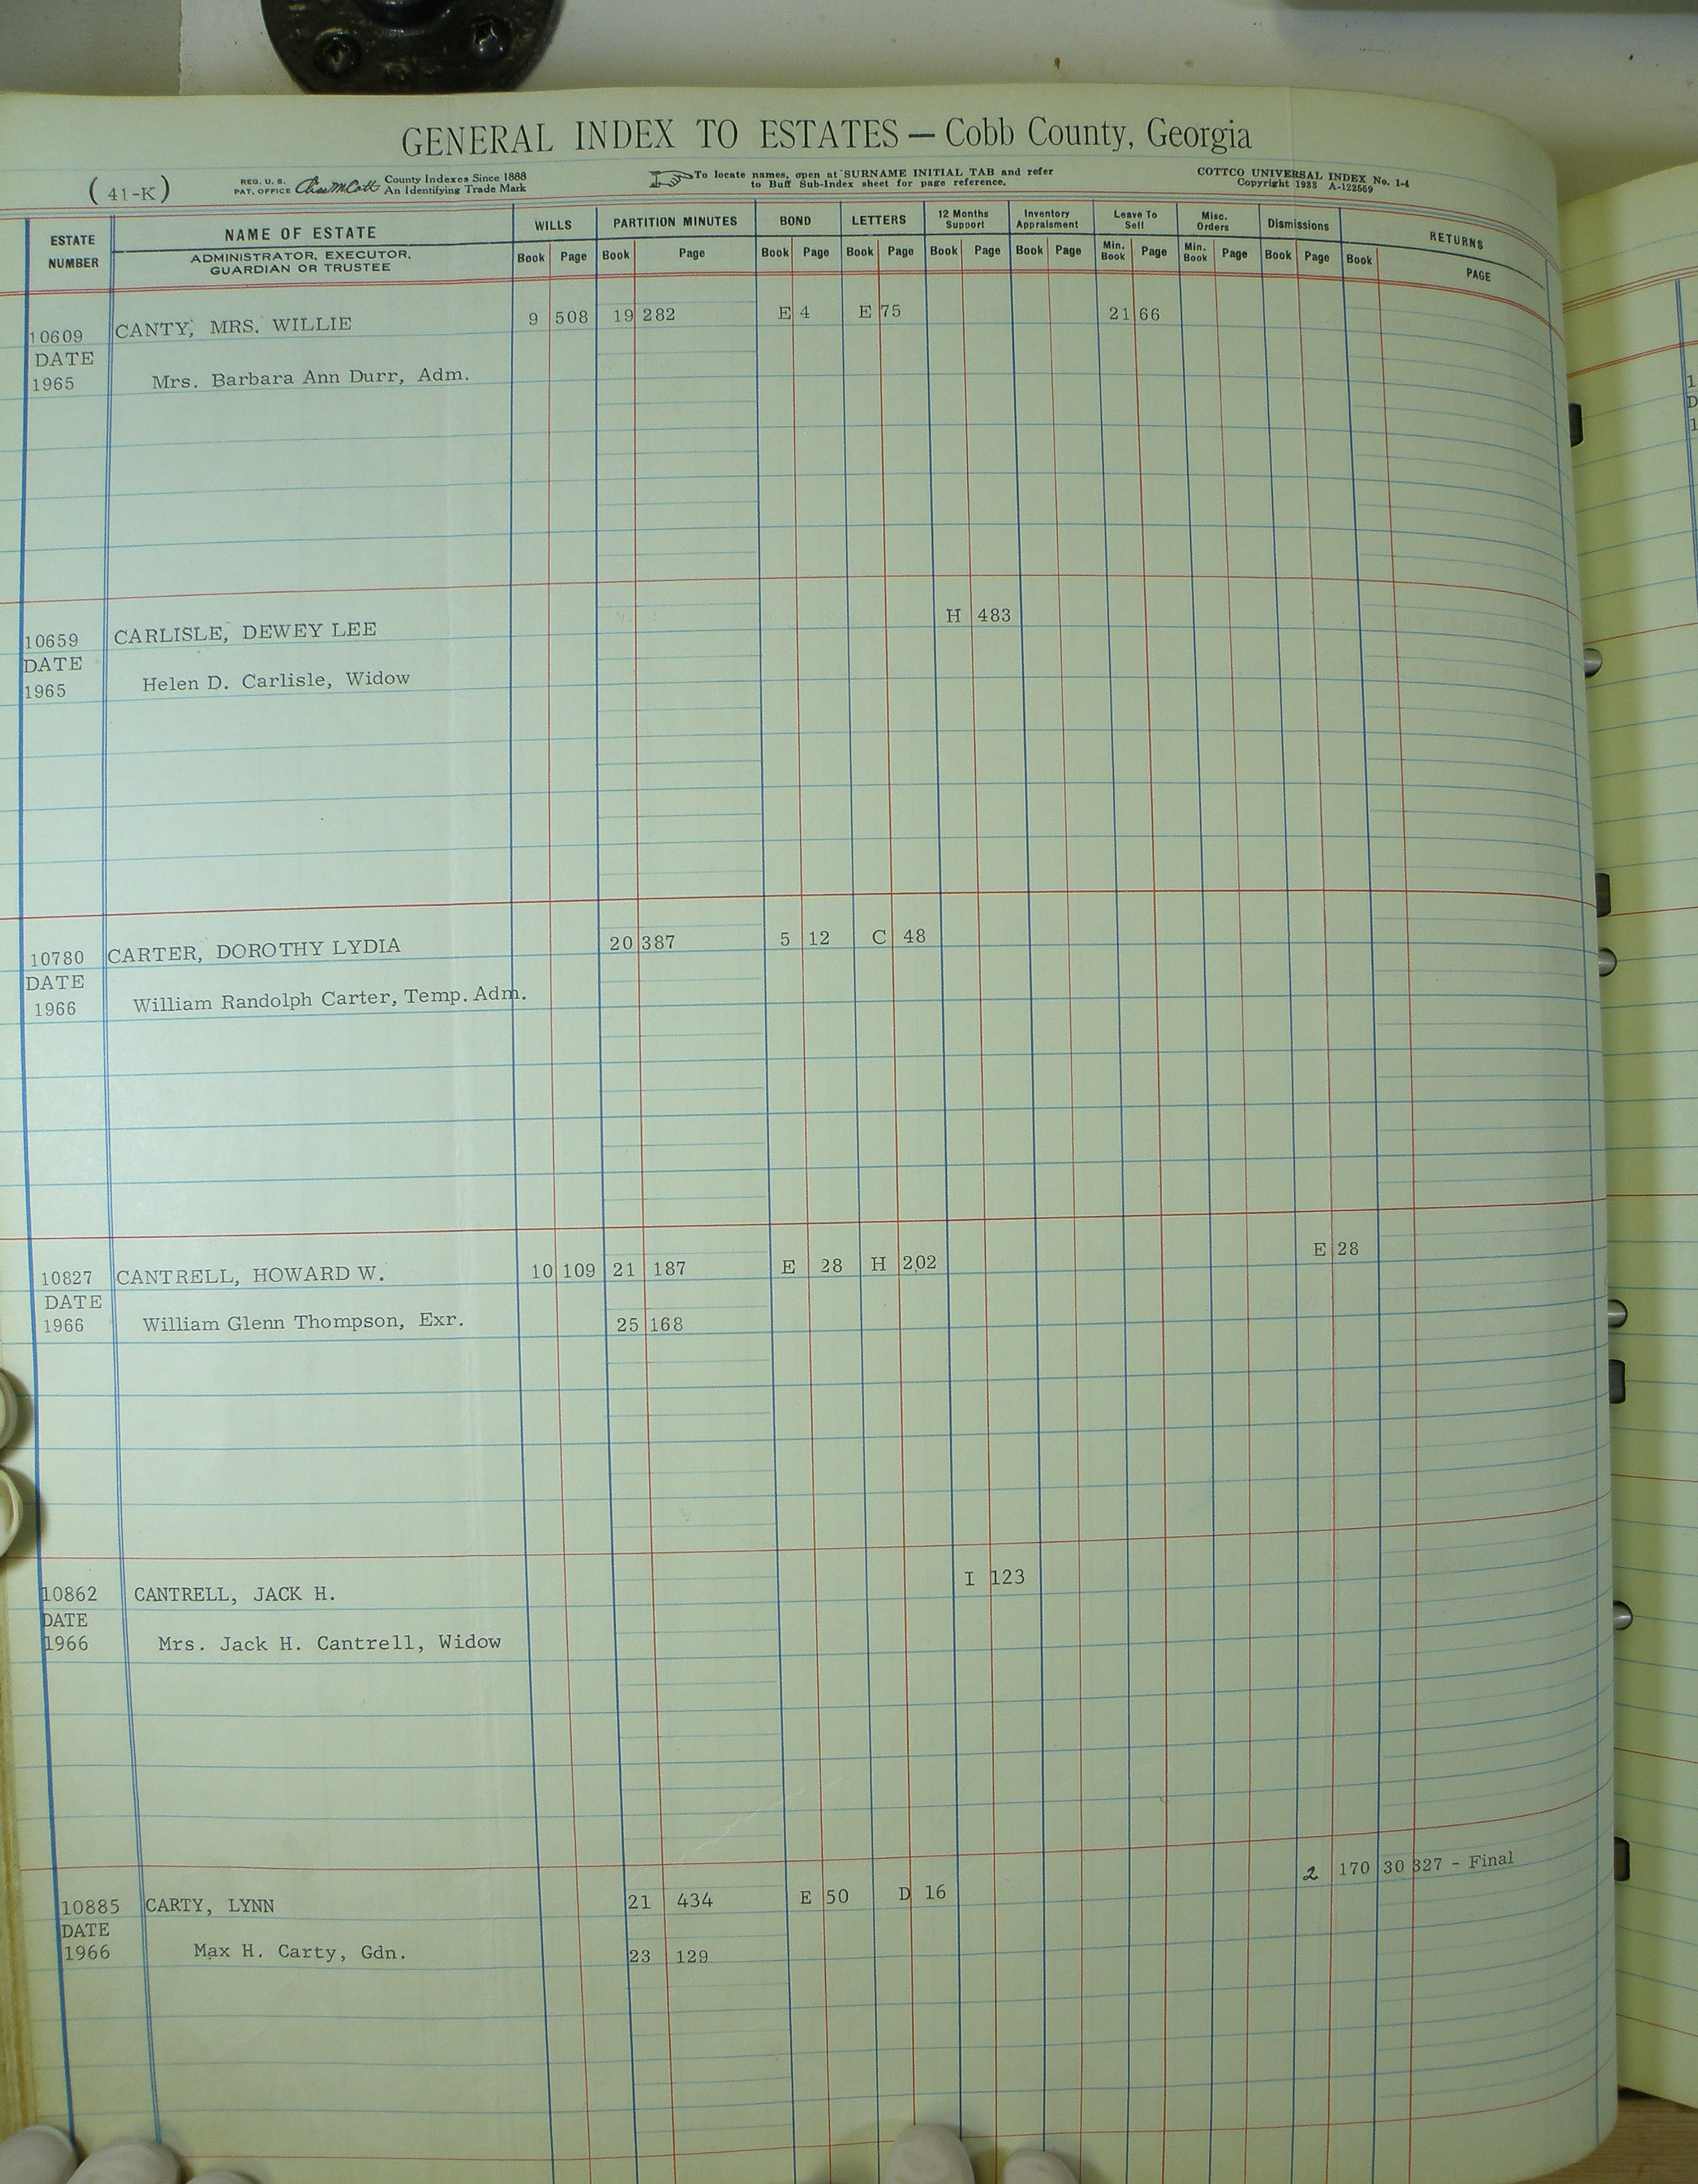 GENERAL INDEX TO ESTATES — Cobb County, Georgia
( 41-K ) REG. U. S. PAT. OFFICE County Indexes Since 1888 An Identifying Trade Mark
To locate names, open at SURNAME INITIAL TAB and refer to Buff Sub-Index sheet for page reference.
COTTCO UNIVERSAL INDEX No. 1-4
Copyright 1933 A-122559
ESTATE NUMBER NAME OF ESTATE WILLS PARTITION MINUTES BOND LETTERS 12 Months Support Inventory Appraisment Leave To Sell Misc. Orders Dismissions RETURNS
ADMINISTRATOR, EXECUTOR, GUARDIAN OR TRUSTEE Book Page Book Page Book Page Book Page Book Page Book Page Min. Book Page Min. Book Page Book Page Book PAGE
10609 CANTY, MRS. WILLIE 9 508 19 282 E 4 E 75 21 66
DATE
1965 Mrs. Barbara Ann Durr, Adm.
10659 CARLISLE, DEWEY LEE H 483
DATE
1965 Helen D. Carlisle, Widow
10780 CARTER, DOROTHY LYDIA 20 387 5 12 C 48
DATE
1966 William Randolph Carter, Temp. Adm.
10827 CANTRELL, HOWARD W. 10 109 21 187 E 28 H 202 E 28
DATE
1966 William Glenn Thompson, Exr. 25 168
10862 CANTRELL, JACK H. I 123
DATE
1966 Mrs. Jack H. Cantrell, Widow
10885 CARTY, LYNN 21 434 E 50 D 16 2 170 30 327 - Final
DATE
1966 Max H. Carty, Gdn. 23 129